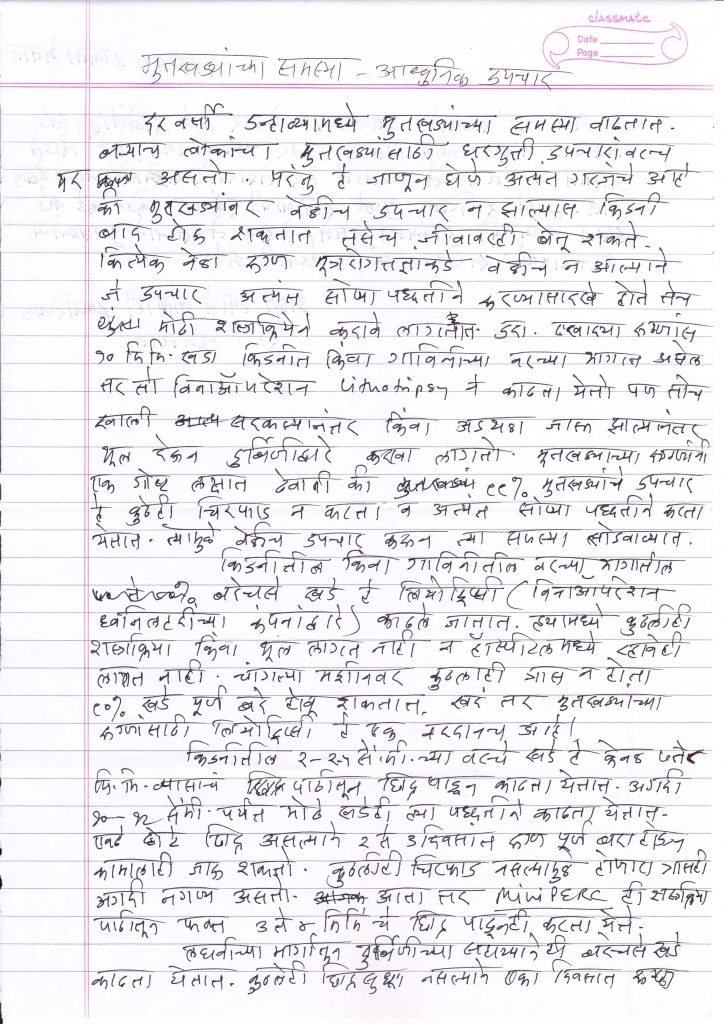 classmate
Date
Page
मुतखड्यांच्या समस्या - आधुनिक उपचार
दरवर्षी उन्हाळ्यामध्ये मुतखड्यांच्या समस्या वाढतात.
बऱ्याच लोकांचा मुतखड्यांसाठी घरगुती उपचारांवरच
भर असतो. परंतु हे जाणून घेणे अत्यंत गरजेचे आहे
की मुतखड्यांवर वेळीच उपचार न झाल्यास किडनी
बाद होऊ शकतात तसेच जीवावरही बेतू शकते.
कित्येक वेळा रुग्ण मूत्ररोगतज्ञाकडे वेळीच न आल्याने
जे उपचार अत्यंत सोप्या पध्दतीने करण्यासारखे होते तेच
मोठी शस्त्रक्रियेने करावे लागतात. उदा. एखाद्या रुग्णास
१० मि.मि. खडा किडनीत किंवा गाविनीच्या वरच्या भागात असेल
तर तो विनाऑपरेशन Lithotripsy ने काढता येतो पण तोच
खाली सरकल्यानंतर किंवा अडथळा जास्त झाल्यानंतर
भूल देऊन दुर्बिणीद्वारे करावा लागतो. मुतखड्याच्या रुग्णांनी
एक गोष्ट लक्षात ठेवावी की ९९% मुतखड्यांचे उपचार
हे कुठेही चिरफाड न करता व अत्यंत सोप्या पध्दतीने करता
येतात. त्यामुळे वेळीच उपचार करून त्या समस्या सोडवाव्यात.
किडनीतील किंवा गाविनीतील वरच्या भागातील
बरेचसे खडे हे लिथोट्रिप्सी (विनाऑपरेशन
ध्वनिलहरीच्या कंपनांद्वारे) काढले जातात. ह्यामध्ये कुठलीही
शस्त्रक्रिया किंवा भूल लागत नाही व हॉस्पिटलमध्ये रहावेही
लागत नाही. चांगल्या मशीनवर कुठलाही त्रास न होता
९०% खडे पूर्ण बरे होवू शकतात. खरं तर मुतखड्यांच्या
रुग्णांसाठी लिथोट्रिप्सी हे एक वरदानच आहे।
किडनीतील १-२.५ सें.मी. च्या वरचे खडे हे केवळ
मि.मि. व्यासाचं पाठीतून छिद्र पाडून काढता येतात. अगदी
१०-१२ सेंमी. पर्यंत मोठे खडेही त्या पध्दतीने काढता येतात.
एवढे छोटे छिद्र असल्याने २ ते ३ दिवसांत रुग्ण पूर्ण बरा होऊन
कामालाही जाऊ शकतो. कुठलीही चिरफाड नसल्यामुळे होणारा त्रासही
अगदी नगण्य असतो. आता तर MINIPERC ही शस्त्रक्रिया
पाठीतून फक्त ३ ते ४ मिमि चे छिद्र पाडूनही करता येते.
लघवीच्या मार्गातून दुर्बिणीच्या सहाय्याने ही बरेचसे खडे
काढता येतात. कुठलेही छिद्रसुध्दा नसल्याने एका दिवसात रुग्ण